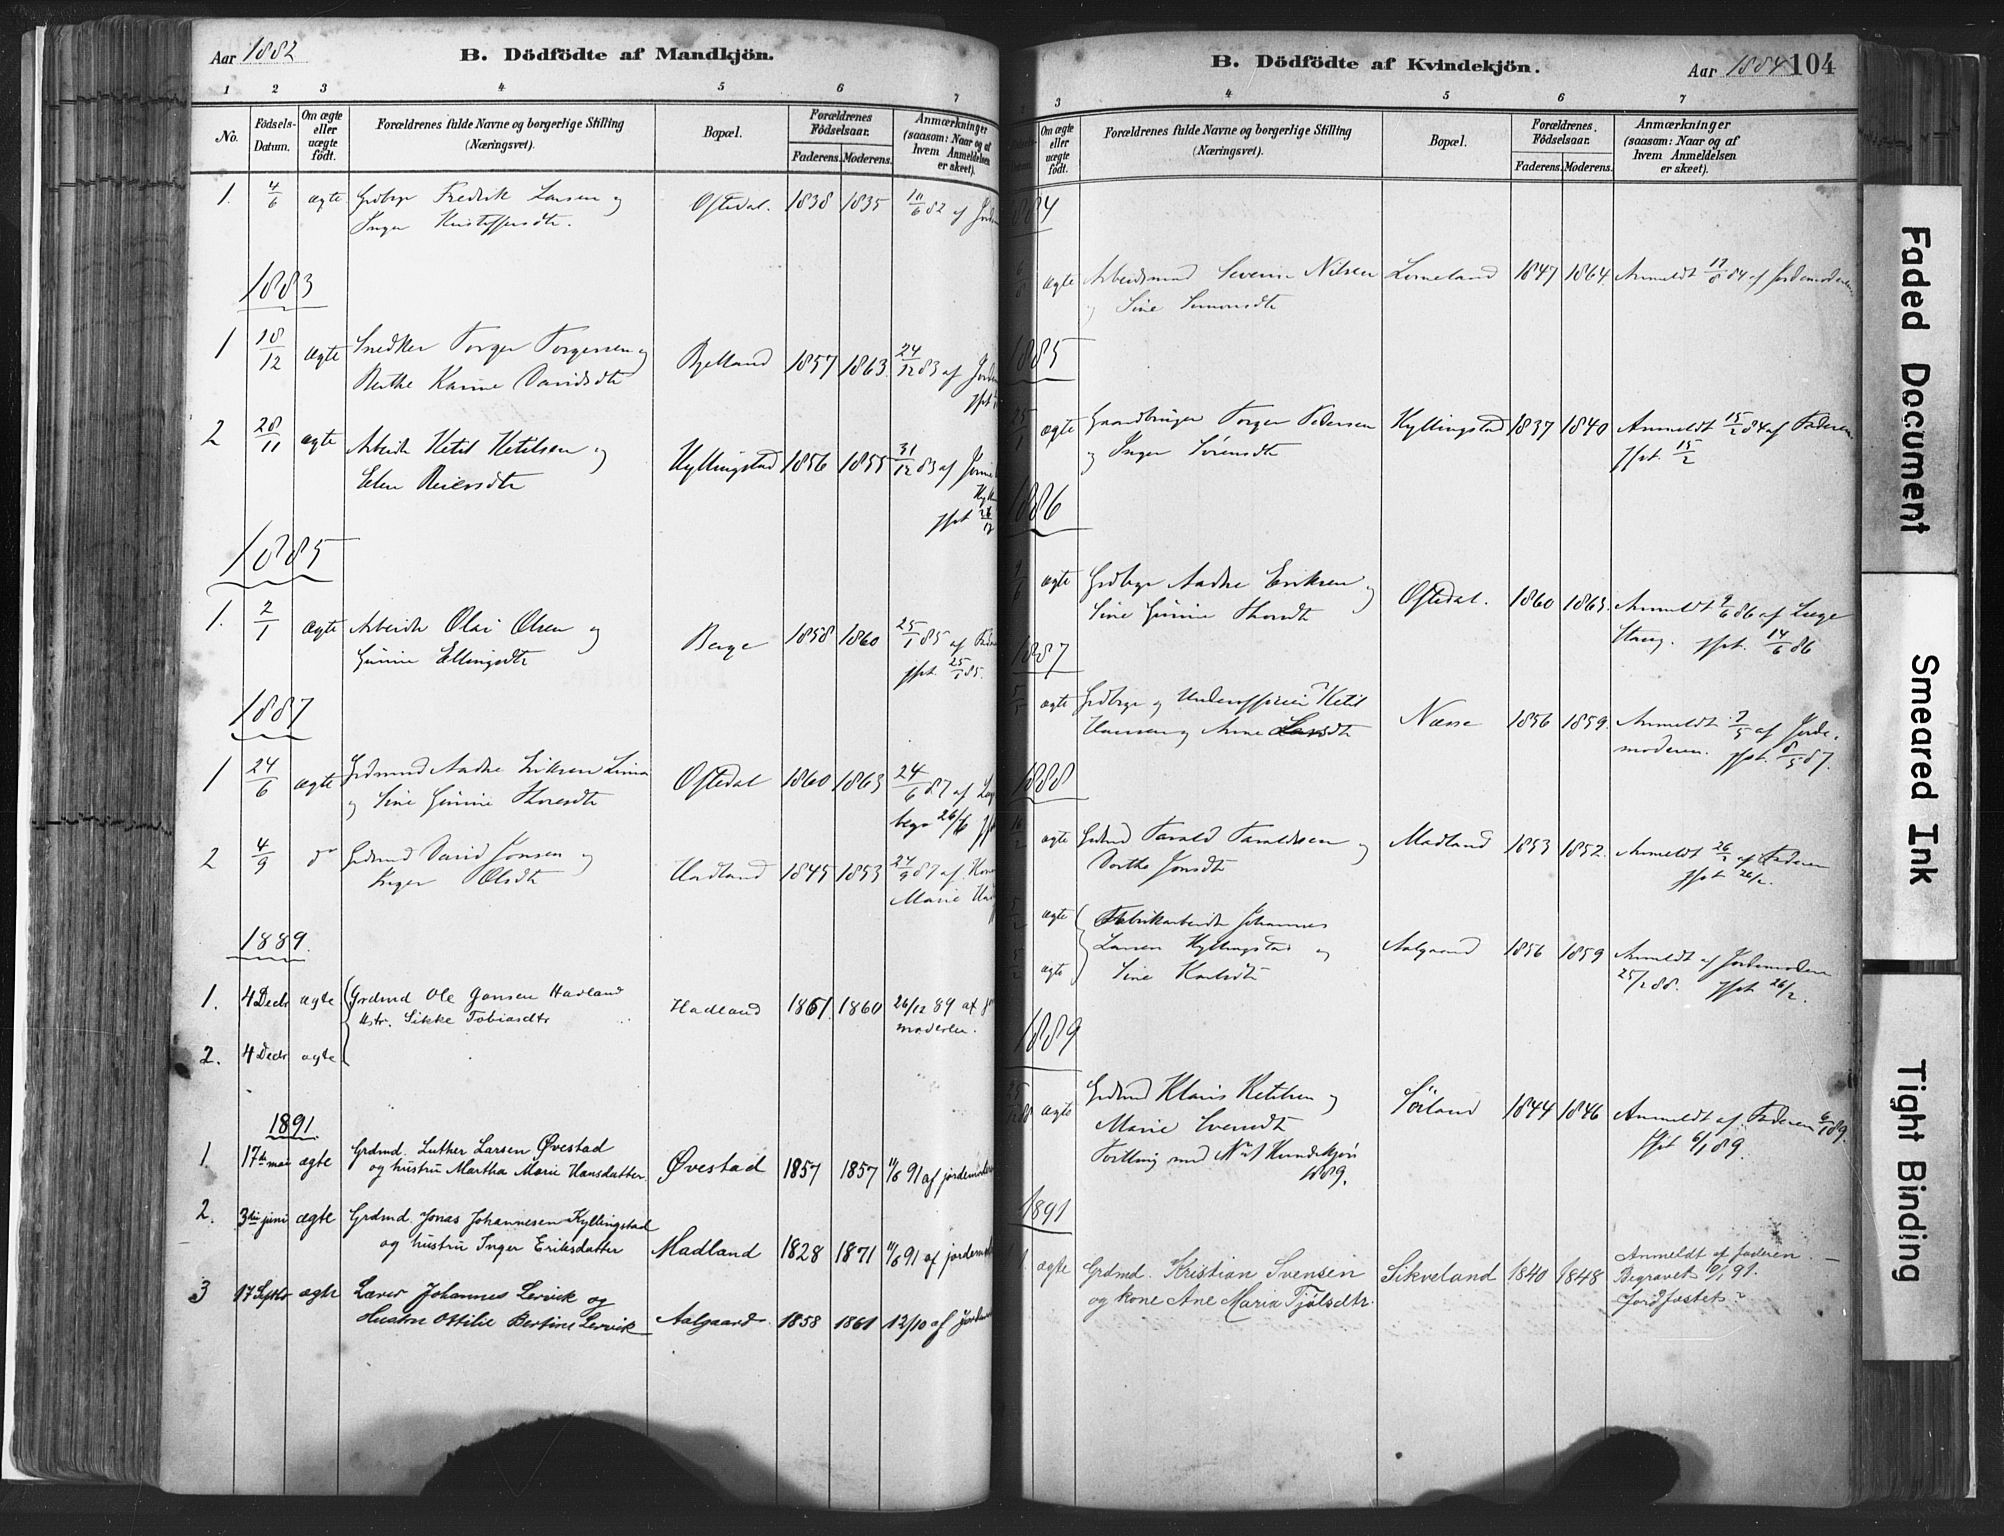 Aar 1882
B. Dödfödte af Mandkjön.
1 2 3 4 5 6 7
No.
Födsels-Datum.
Om ægte eller uægte födt.
Forældrenes fulde Navne og borgerlige Stilling
(Næringsvei).
Bopæl.
Forældrenes Födselsaar.
Faderens. Moderens.
Anmærkninger
(saasom: Naar og af
hvem Anmeldelsen
er skeet).
1. 4/6 ægte Grdbgr Fredrik Larsen og Oftedal. 1838 1835 10/6 82 af
Inger Kristoffersdtr.
1883
1 18/12 ægte Snedker Torger Torgersen og Bjelland 1857 1863 24/12 83 af
Berthe Karine Davidsdtr
2 28/11 ægte Arbeidr Ketil Ketilsen og Kyllingstad 1856 1855 31/12 83 af
Elen Reiersdtr
1885
1. 2/1 ægte Arbeidr Olai Olsen og Berge 1858 1860 25/1 85 af
Gunine Ellingsdtr jfst. 25/1 85.
1887
1 24/6 ægte Grdmand Aadne Eriksen Lima Oftedal 1860 1863 24/6 87 af
og Sine Gunine Thoresdtr begr 26/6
2 4/9 do Grdmd David Jonsen og Hadland 1845 1853 24/9 87 af
Inger Olsdtr Marie
1889.
1. 4 Decbr ægte Grdmd Ole Jonsen Hadland Hadland 1861. 1860 26/12 89 af
Hstr. Sikke Tobiasdtr moderen.
2. 4 Decbr ægte
1891.
1. 17de mai ægte Grdmd. Luther Larsen Øvestad Øvestad 1857 1857 11/6 91 af jordemoderen
og hustru Martha Marie Hansdatter.
2. 3die juni ægte Grdmd. Jonas Johannesen Kyllingstad Madland 1828 1871 11/6 91 af
og hustru Inger Eriksdatter
3 17 Septbr ægte Lærer Johannes Lervik og
Hustru Ottilie Bertine Lervik Aalgaard. 1858 1861 12/10 af
B. Dödfödte af Kvindekjön.
Aar 1884 104
3 4 5 6 7
Om ægte eller uægte födt.
Forældrenes fulde Navne og borgerlige Stilling
(Næringsvei).
Bopæl.
Forældrenes Födselsaar.
Faderens. Moderens.
Anmærkninger
(saasom: Naar og af
hvem Anmeldelsen
er skeet).
1884
ægte Arbeidsmand Severin Nilsen Lomeland 1847 1864. Anmeldt 17/8 84 af Jordemoderen
og Sine Simonsdtr
1885
25/1 ægte Gaardbruger Torger Pedersen Kyllingstad 1837 1840 Anmeldt 15/2 84 af Faderen
og Inger Sörensdtr jfst. 15/2
1886
9/6 ægte Grdbgr Aadne Eriksen og Oftedal. 1860 1863. Anmeldt 9/6 86 af Læge
Sine Gunine Thoresdtr Stang. jfst. 14/6 86
1887
5/5 ægte Grdbgr og Underofficier Ketil Næsse 1856 1859. Anmeldt 7/5 af Jorde-
Hansen og Anne Larsdtr moderen. jfst. 8/5 87.
1888
16/2 ægte Grdmd Tarald Taraldsen og Madland 1853 1852. Anmeldt 26/2 af Faderen
Dorthe Jonsdtr jfst 26/2.
5/2 ægte Fabrikarbeidr Johannes
Larsen Kyllingstad og Aalgaard 1856 1859 Anmeldt af Jordemoderen
5/2 ægte Sine 25/2 88. jfst. 26/2.
1889
25/12 88 ægte Grdmd Klaus Ketilsen og Sörland 1844 1846 Anmeldt af Faderen 6/1 89.
Marie jfst 6/1 89.
Tvilling med No 1 Kvindekjön
1889.
1891
1. ægte Grdmd. Kristian Svensen Sikveland 1840 1848 Anmeldt af faderen.
og kone Ane Maria Tjölsdtr. Begravet 10/1 91.
Jordfæstet?
Faded Document
Smeared Ink
Tight Binding